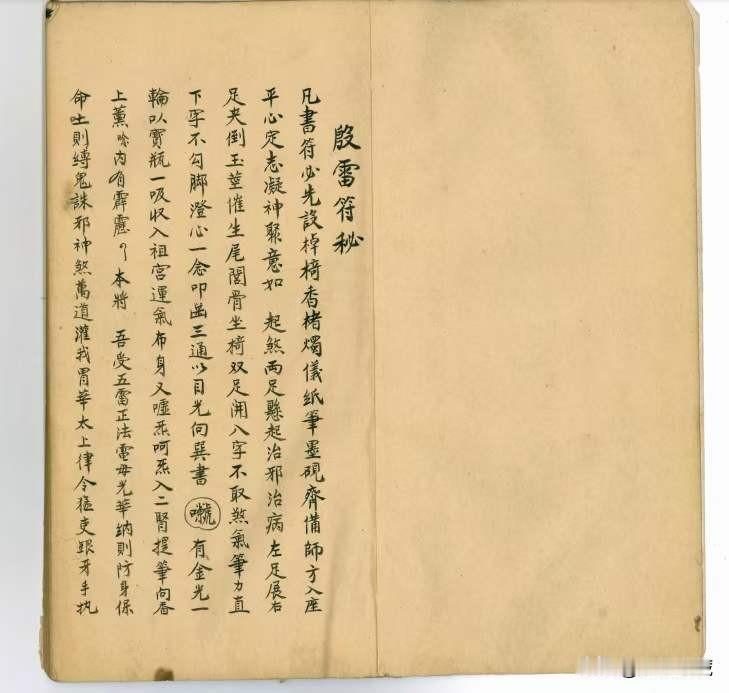 殷雷符秘
凡書符必先設棹椅香楮燭儀紙筆墨硯齊備師方入座
平心定志凝神聚意如 起煞兩足懸起治邪治病左足展右
足夹倒玉莖催生尾閭骨坐椅双足開八字不取煞氣筆力直
下字不勾脚澄心一念叩齒三通以目光向巽書 有金光一
輪以寶瓶一吸收入祖宮運氣布身又噓炁呵炁入二腎提筆向香
上薰 内有霹靂 本將 吾受五雷正法電母光華納則防身保
命吐則縛鬼誅邪神煞萬道灌我胃華太上律令猛吏銀牙手执